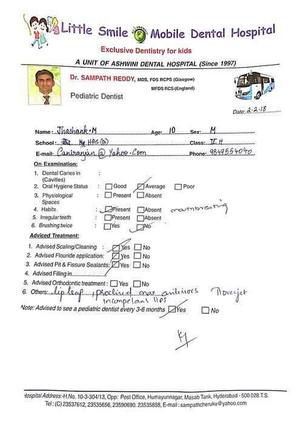 Little Smile Mobile Dental Hospital
Exclusive Dentistry for kids
A UNIT OF ASHWINI DENTAL HOSPITAL (Since 1997)
Dr. SAMPATH REDDY, MDS, FDS RCPS (Glasgow)
MFDS RCS (England)
Pediatric Dentist
Date: 2-2-18
Name: Shashank.M Age: 10 Sex: M
School: HPS(B) Class: IV H
E-mail: @Yahoo.Com Phone:
On Examination:
1. Dental Caries in :
(Cavities)
2. Oral Hygiene Status : Good Average Poor
3. Physiological : Present Absent
Spaces
4. Habits. : Present Absent
5. Irregular teeth : Present Absent
6. Brushing twice : Yes No
Advised Treatment:
1. Advised Scaling/Cleaning : Yes No
2. Advised Flouride application: Yes No
3. Advised Pit & Fissure Sealants: Yes No
4. Advised Filling in
5. Advised Orthodontic treatment : Yes No
6. Others: lip proclined anteriors overjet
incompetent lips
Note: Advised to see a pediatric dentist every 3-6 months Yes No
Hospital Address:-H.No. 10-3-304/13, Opp: Post Office, Humayunnagar, Masab Tank, Hyderabad - 500 028.T.S.
Tel:(C) 23537612, 23535656, 23590690, 23535838, E-mail : sampathcheruke@yahoo.com